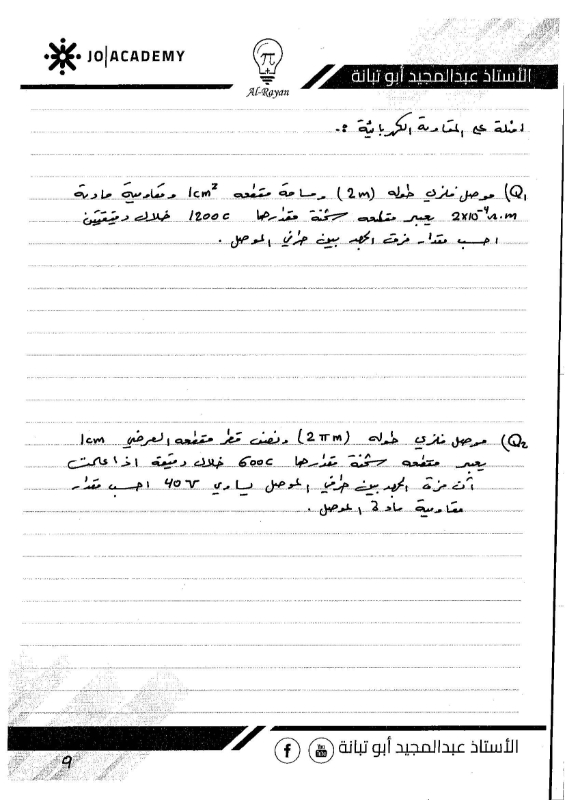 JO|ACADEMY
π
Al-Rayan
الأستاذ عبدالمجيد أبو تبانة
امثلة على المقاومة الكهربائية :.
Q1) موصل فلزي طوله (2m) ومساحة مقطعه 1cm² ومقاومية مادته
2x10⁻⁴Ω.m يعبر مقطعه شحنة مقدارها 1200c خلال دقيقتين
احسب مقدار فرق الجهد بين طرفي الموصل .
Q2) موصل فلزي طوله (2πm) ونصف قطر مقطعه العرضي 1cm
يعبر مقطعه شحنة مقدارها 600c خلال دقيقة اذا علمت
أن فرق الجهد بين طرفي الموصل يساوي 40v احسب مقدار
مقاومية مادة الموصل .
f You Tube الأستاذ عبدالمجيد أبو تبانة
9